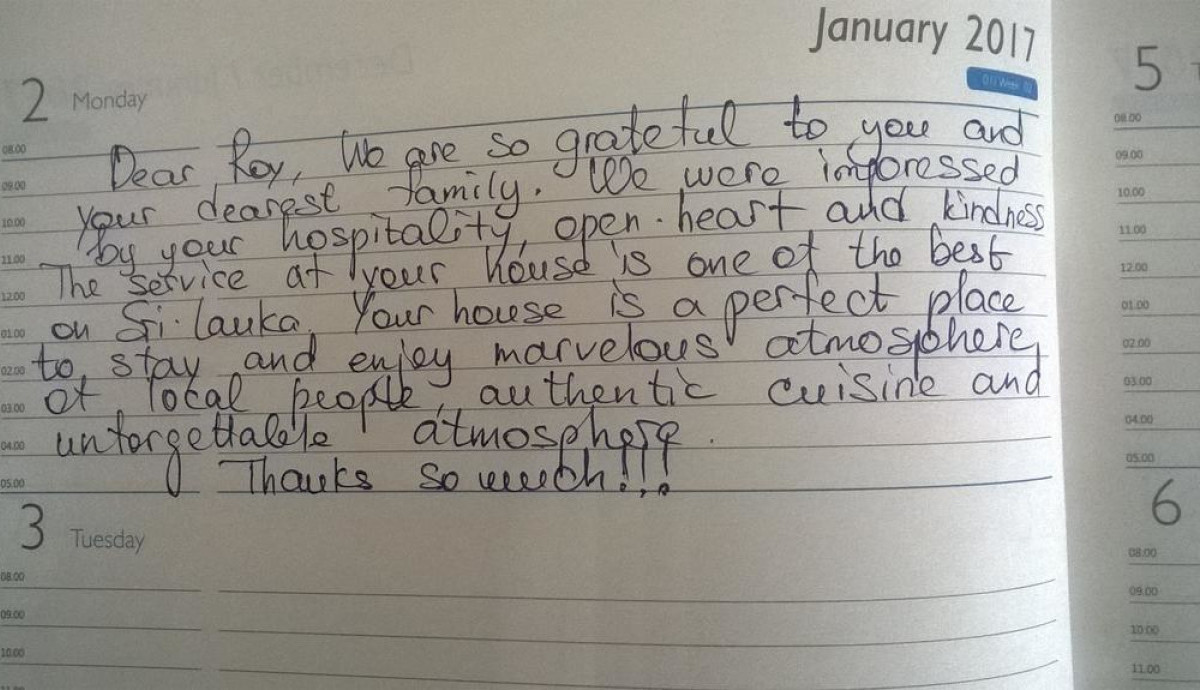 January 2017
2 Monday
08.00
Dear Roy, We are so grateful to you and
09.00
your dearest family. We were impressed
10.00
by your hospitality, open-heart and kindness
11.00
The service at your house is one of the best
12.00
on Sri-Lanka. Your house is a perfect place
01.00
to stay and enjoy marvelous atmosphere
02.00
of local people, authentic cuisine and
03.00
unforgettable atmosphere.
04.00
Thanks so much!!!
05.00
3 Tuesday
08.00
09.00
10.00
5
08.00
09.00
10.00
11.00
12.00
01.00
02.00
03.00
04.00
05.00
6
08.00
09.00
10.00
11.00